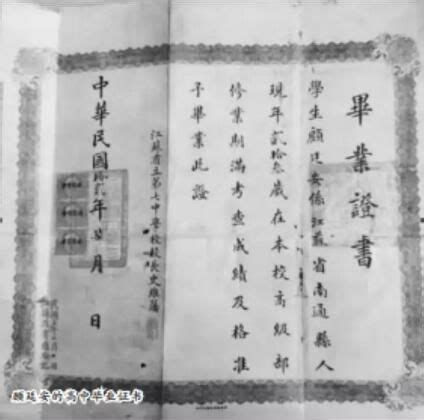 畢業證書
學生顧廷安係江蘇省南通縣人
現年貳拾叁歲在本校高級部
修業期滿考查成績及格准
予畢業此證
江蘇省立第七中學校校長史
中華民國拾貳年 月 日
顾廷安的高中毕业证书